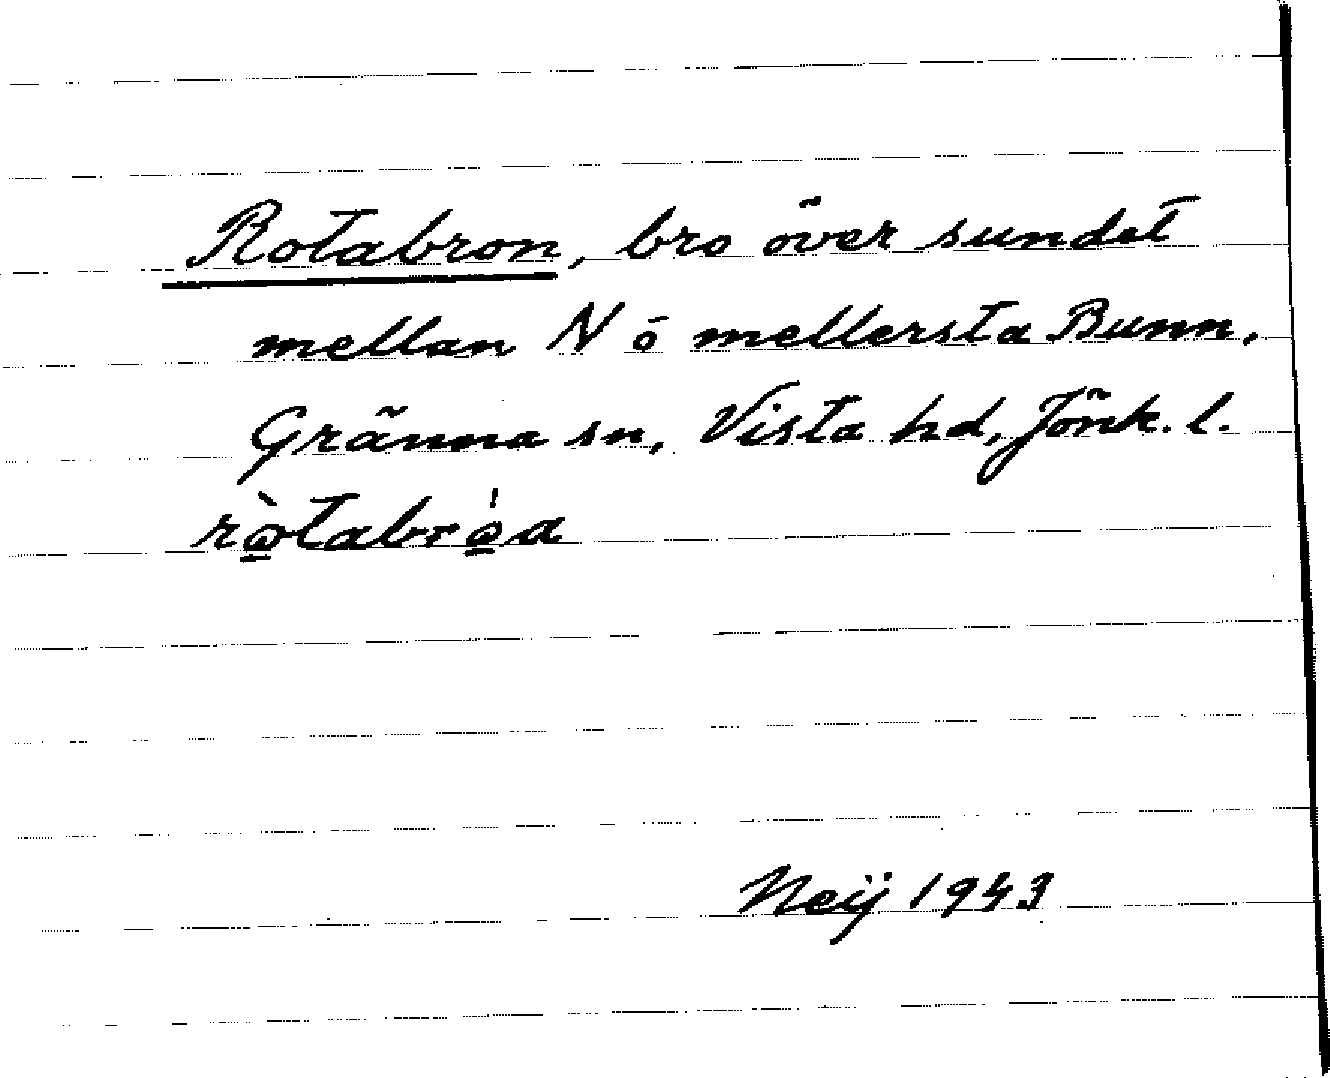 Rotabron, bro över sundet
mellan N ō mellersta Bunn,
Gränna sn, Vista hd, Jönk. l.
rò̱tabró̱a
Neij 1943